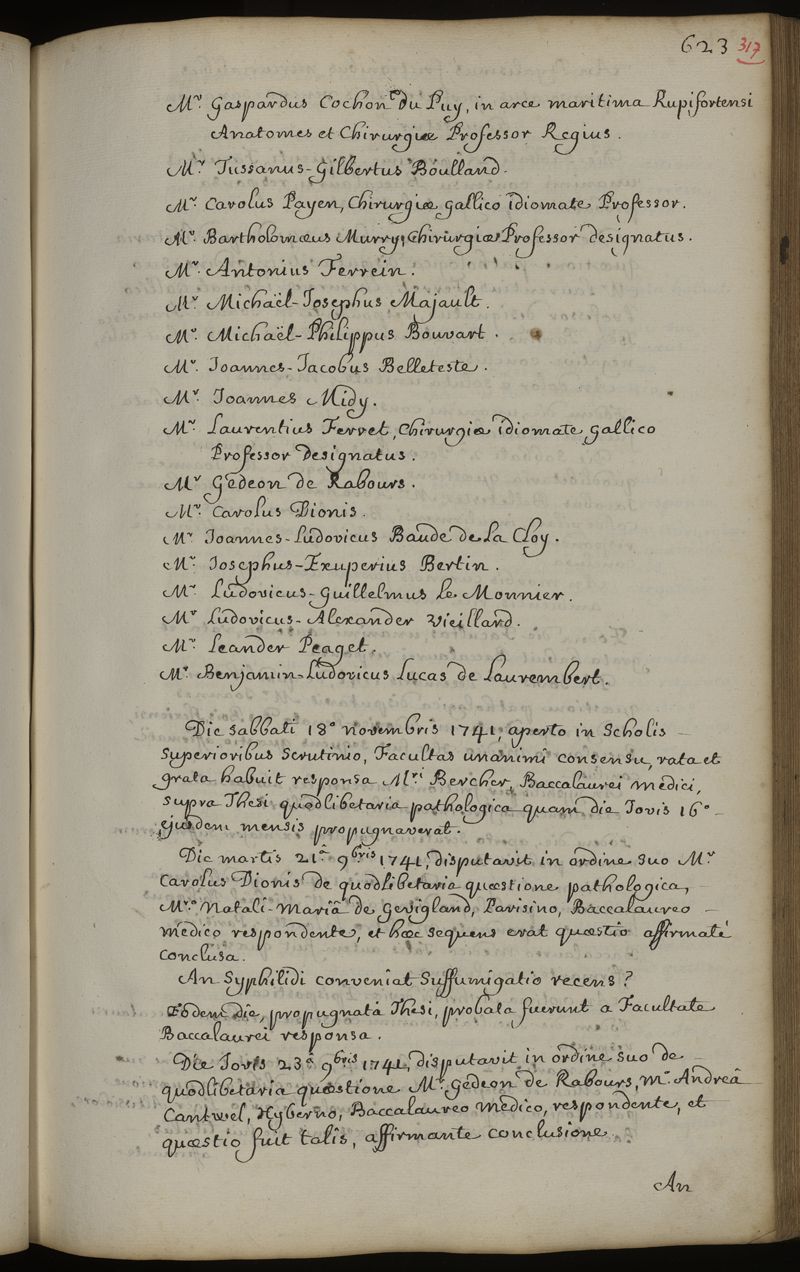 623 317
Mr. Gaspardus Cochon du Puy, in arce maritima Rupifortensi
Anatomes et Chirurgiæ Professor Regius.
Mr. Tussanus-Gilbertus Boulland.
Mr. Carolus Payen, Chirurgiæ gallico idiomate Professor.
Mr. Bartholomæus Murry, Chirurgiæ Professor designatus.
Mr. Antonius Ferrein.
Mr. Michaël-Josephus Majault.
Mr. Michaël-Philippus Bouvart.
Mr. Joannes-Jacobus Belleteste.
Mr. Joannes Midy.
Mr. Laurentius Ferret, Chirurgiæ idiomate gallico
Professor Designatus.
Mr. Gedeon de Rabours.
Mr. Carolus Dionis.
Mr. Joannes-Ludovicus Baude de la Cloy.
Mr. Josephus-Exuperius Bertin.
Mr. Ludovicus-Guillelmus Le Monnier.
Mr. Ludovicus-Alexander Vieillard.
Mr. Leander Peaget.
Mr. Benjamin-Ludovicus Lucas de Laurembert.
Die Sabbati 18° novembris 1741, aperto in Scholis
Superioribus Scrutinio, Facultas unanimi consensu, rata et
grata habuit responsa Mri Bercher, Baccalaurei medici,
supra Thesi quodlibetaria pathologica quam die Jovis 16°
ejusdem mensis propugnaverat.
Die martis 21â 9bris 1741, disputavit in ordine suo Mr.
Carolus Dionis de quodlibetaria quæstione pathologica,
Mro Natali-Mariâ de Gevigland, Parisino, Baccalaureo
medico respondente, et hæc sequens erat quæstio affirmatè
conclusa.
An Syphilidi conveniat Suffumigatio recens?
Eodem die, propugnatâ Thesi, probata fuerunt a Facultate
Baccalaurei responsa.
Die Jovis 23â 9bris 1741, disputavit in ordine suo de
quodlibetaria quæstione Mr. Gedeon de Rabours, Mo Andreâ
Cantwel, Hyberno, Baccalaureo medico, respondente, et
quæstio fuit talis, affirmante conclusione.
An